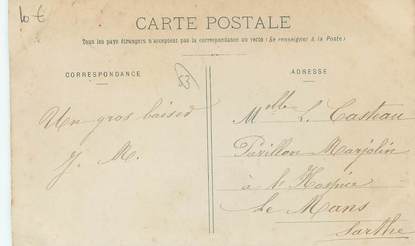 10 €
CARTE POSTALE
Tous les pays étrangers n'acceptent pas la correspondance au verso (Se renseigner à la Poste)
CORRESPONDANCE
ADRESSE
Un gros baiser
J. M.
Melle L. Castiau
Pavillon Marjolin
à l'Hospice
Le Mans
Sarthe